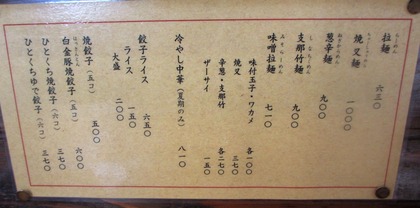 拉麺 六三〇
らーめん
焼叉麺 一〇〇〇
ちゃーしゅーめん
葱辛麺 九〇〇
ねぎからめん
支那竹麺 九〇〇
しなちくめん
味噌拉麺 七一〇
みそらーめん
味付玉子・ワカメ 各一〇〇
焼叉 三七〇
辛葱・支那竹 各二七〇
ザーサイ 一五〇
冷やし中華(夏期のみ) 八一〇
餃子ライス 六五〇
ライス 一五〇
大盛 二〇〇
焼餃子(五コ) 五〇〇
白金豚焼餃子(五コ) 六〇〇
ひとくち焼餃子(六コ) 三七〇
ひとくちゆで餃子(六コ) 三七〇